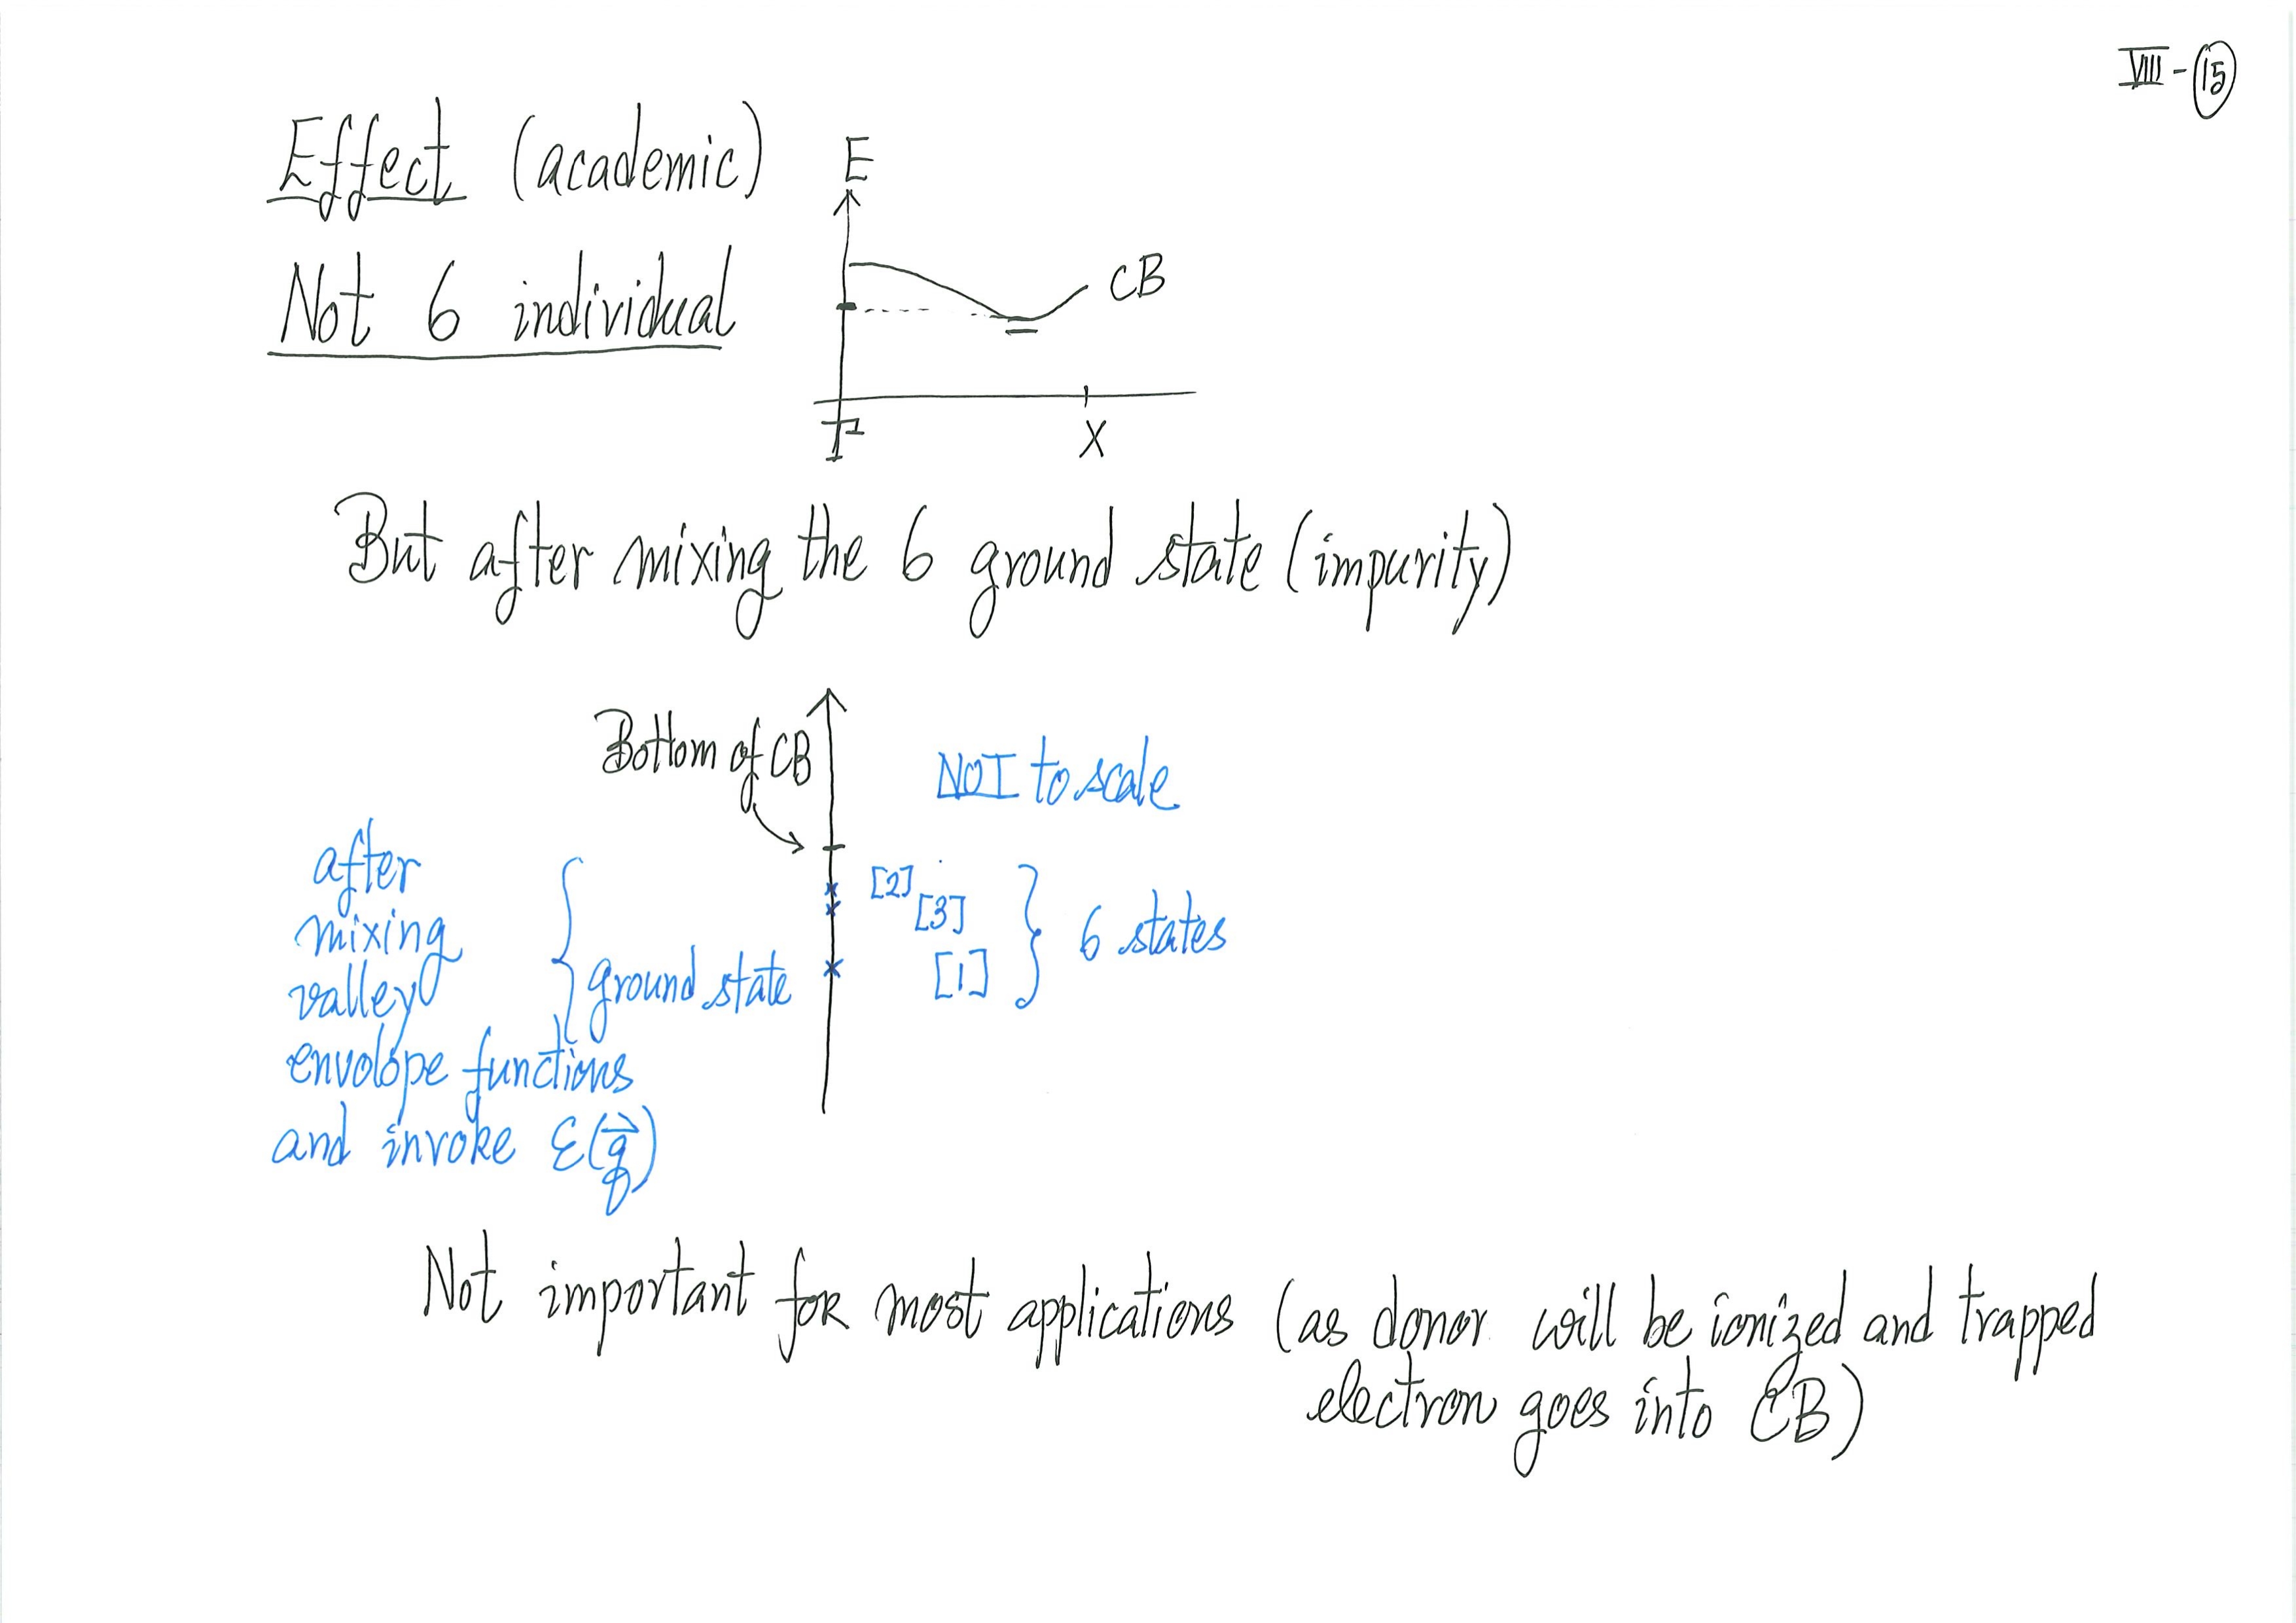 VIII - 15
Effect (academic)
E
Not 6 individual
CB
Γ
X
But after mixing the 6 ground state (impurity)
Bottom of CB
NOT to scale
after
mixing
valley
envolope functions
and invoke ε(q⃗)
ground state
[2]
[3]
[1]
6 states
Not important for most applications (as donor will be ionized and trapped
electron goes into CB)